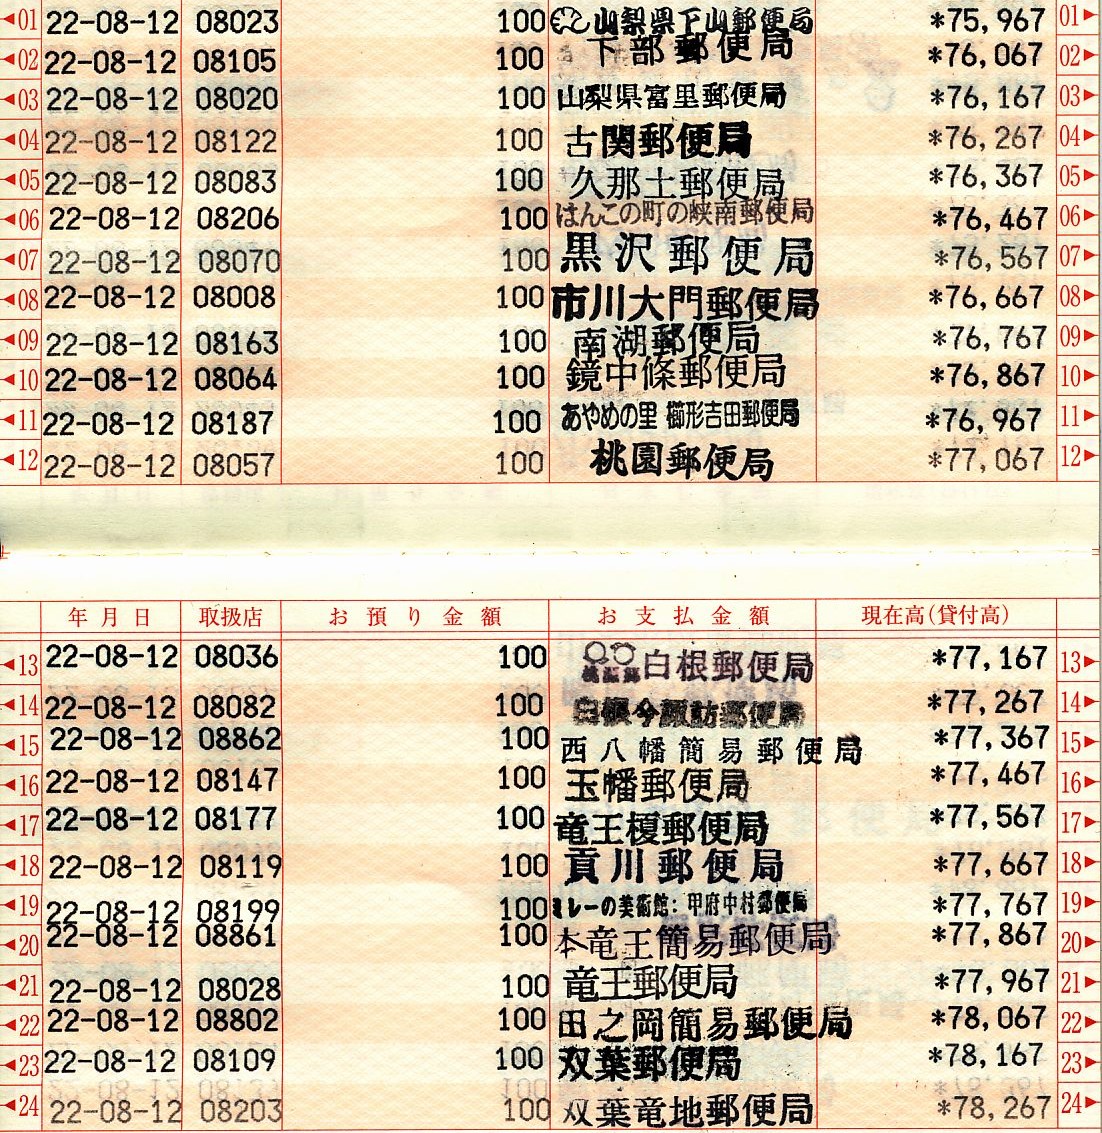 ◄01 22-08-12 08023 100 山梨県下山郵便局 *75,967 01►
◄02 22-08-12 08105 100 下部郵便局 *76,067 02►
◄03 22-08-12 08020 100 山梨県富里郵便局 *76,167 03►
◄04 22-08-12 08122 100 古関郵便局 *76,267 04►
◄05 22-08-12 08083 100 久那土郵便局 *76,367 05►
◄06 22-08-12 08206 100 はんこの町の峡南郵便局 *76,467 06►
◄07 22-08-12 08070 100 黒沢郵便局 *76,567 07►
◄08 22-08-12 08008 100 市川大門郵便局 *76,667 08►
◄09 22-08-12 08163 100 南湖郵便局 *76,767 09►
◄10 22-08-12 08064 100 鏡中條郵便局 *76,867 10►
◄11 22-08-12 08187 100 あやめの里 櫛形吉田郵便局 *76,967 11►
◄12 22-08-12 08057 100 桃園郵便局 *77,067 12►
年月日 取扱店 お預り金額 お支払金額 現在高(貸付高)
◄13 22-08-12 08036 100 桃源郷 白根郵便局 *77,167 13►
◄14 22-08-12 08082 100 白根今諏訪郵便局 *77,267 14►
◄15 22-08-12 08862 100 西八幡簡易郵便局 *77,367 15►
◄16 22-08-12 08147 100 玉幡郵便局 *77,467 16►
◄17 22-08-12 08177 100 竜王榎郵便局 *77,567 17►
◄18 22-08-12 08119 100 貢川郵便局 *77,667 18►
◄19 22-08-12 08199 100 ミレーの美術館:甲府中村郵便局 *77,767 19►
◄20 22-08-12 08861 100 本竜王簡易郵便局 *77,867 20►
◄21 22-08-12 08028 100 竜王郵便局 *77,967 21►
◄22 22-08-12 08802 100 田之岡簡易郵便局 *78,067 22►
◄23 22-08-12 08109 100 双葉郵便局 *78,167 23►
◄24 22-08-12 08203 100 双葉竜地郵便局 *78,267 24►